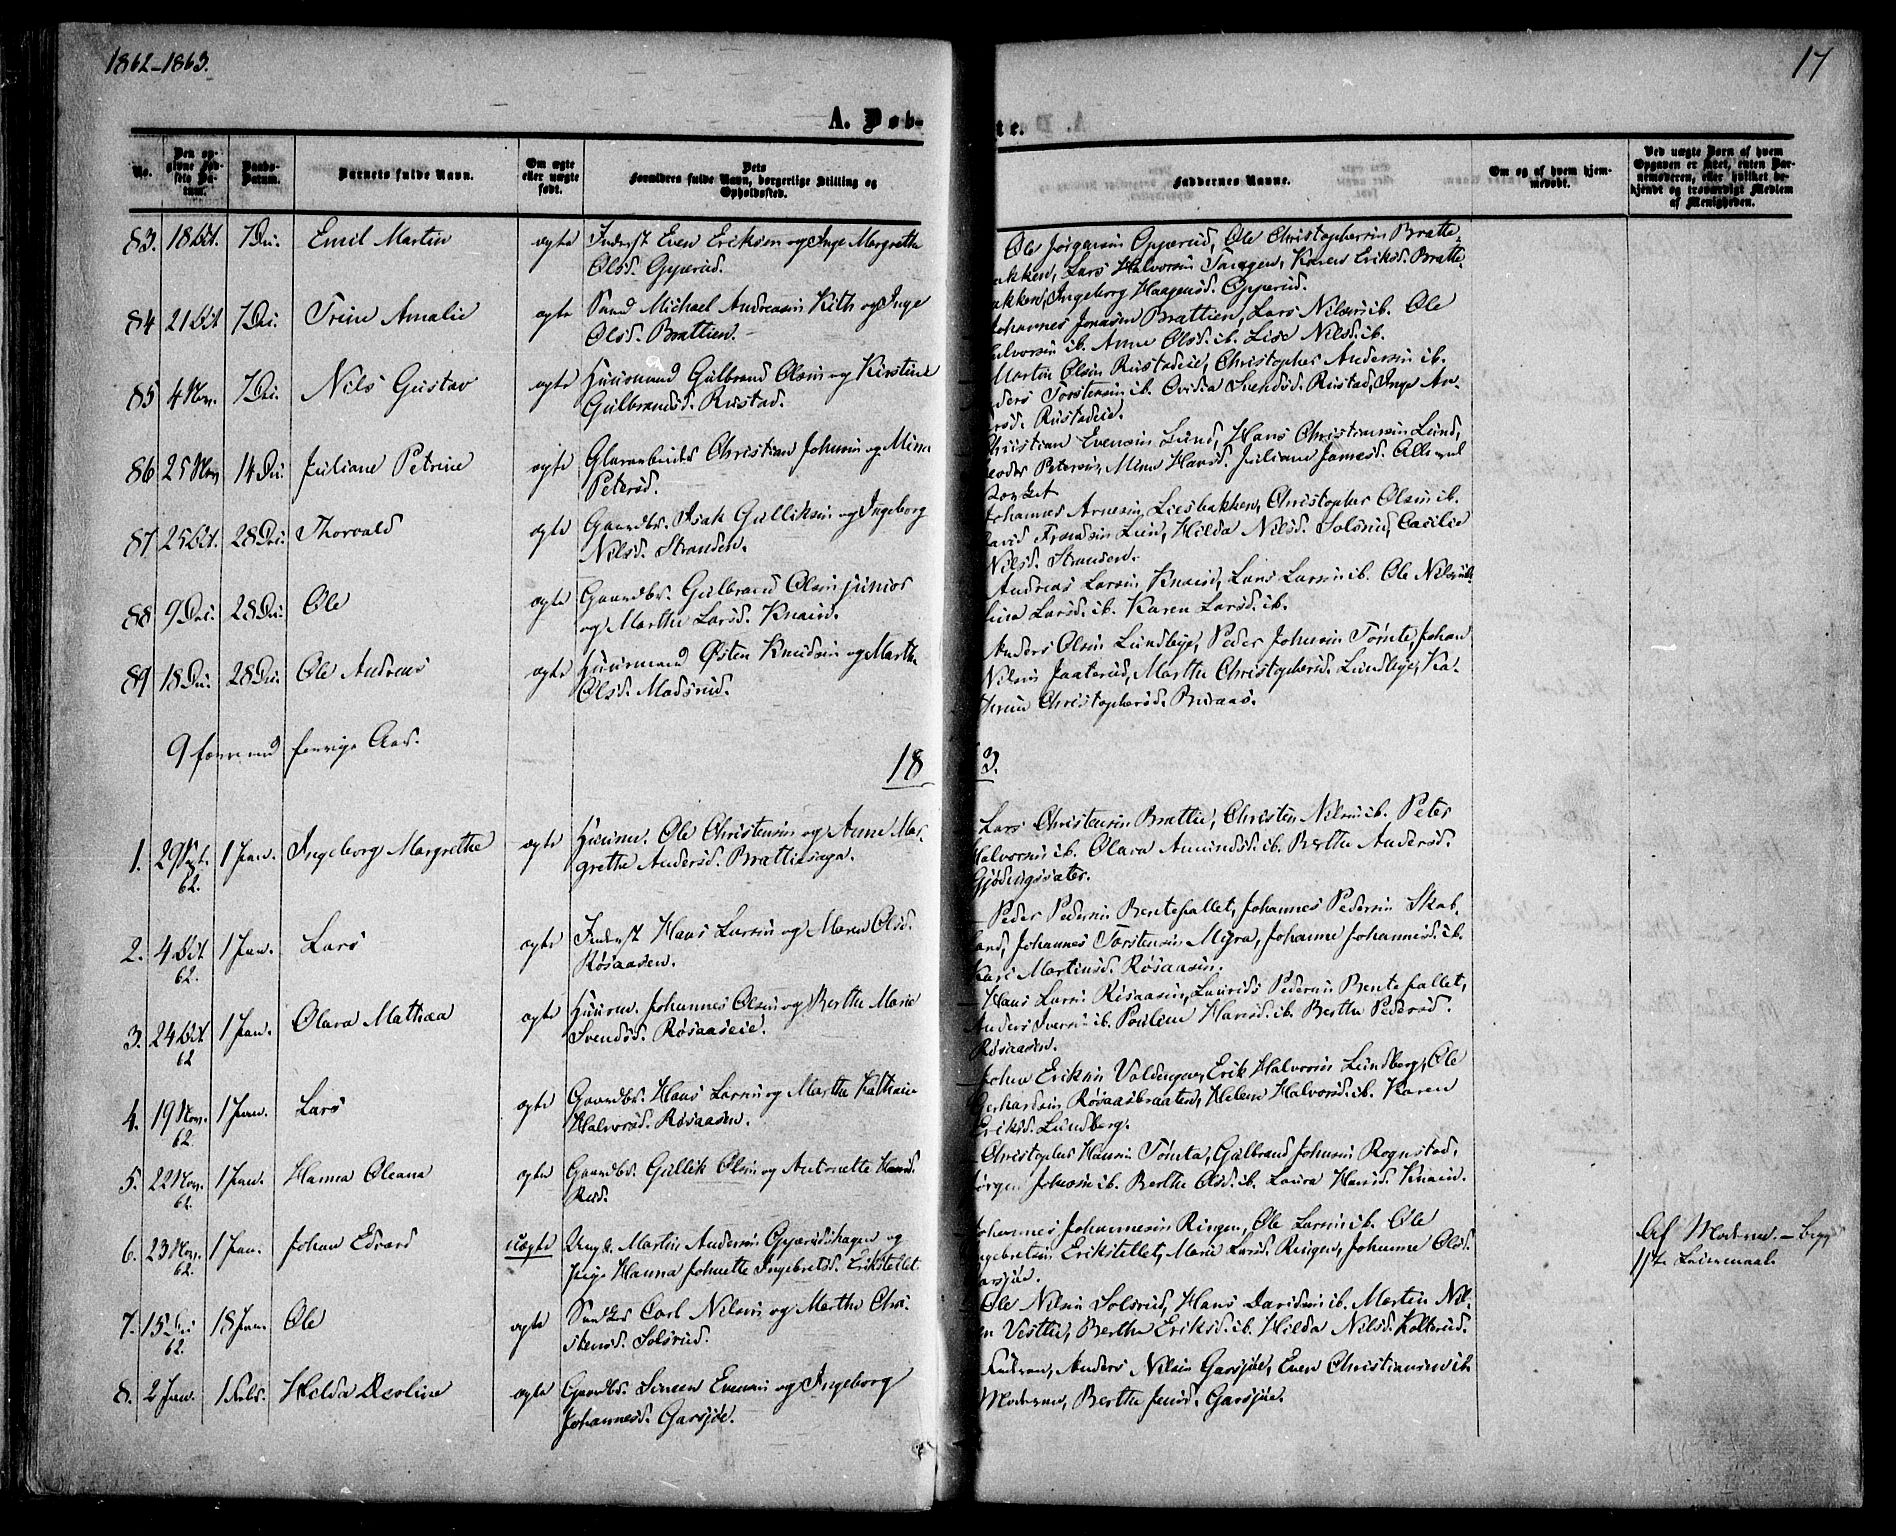 1862-1863.
17
A. Døb-
te.
No.
Den opgivne Fødsels Datum.
Daabs-Datum.
Barnets fulde Navn.
Om ægte eller uægte født.
Dets Forældres fulde Navn, borgerlige Stilling og Opholdssted.
Faddernes Navne.
Om og af hvem hjemmedøbt.
Ved uægte Børn af hvem Opgaven er skeet, enten Barnemoderen, eller hvilket bekjendt og troværdigt Medlem af Menigheden.
83. 18 Oct. 7 Dec. Emil Martin ægte Inderst Even Eriksen og Inge Margrethe
Olsd. Opperud.
Ole Jørgensen Opperud, Ole Christophersen Bratte-
bakken, Lars Halvorsen Karen Eriksd. Bratte-
bakken, Ingeborg Haagensd. Opperud.
84 21 Oct 7 Dec. Trine Amalie ægte Smed Michael Andreasen Kith og Inge
Olsd. Brattien.
Johannes Jonasen Brattien, Lars Nilsen ib. Ole
Halvorsen ib. Anne Olsd. ib. Lise Nilsd. ib.
85 4 Nov. 7 Dec. Nils Gustav ægte Huusmand Gulbrand Olsen og Kirstine
Gulbrandsd. Rustad.
Martin Olsen Rustadeie, Christopher Andersen ib.
Anders Torstensen ib. Svendsd. Rustad, Inge An-
dersd. Rustadeie.
86 25 Nov 14 Dec. Juliane Petrine ægte Glarbeider Christian Johnsen og Mina
Petersd.
Christian Evensen Lund, Hans Christiansen Lund,
Petersen, Mina Hansd. Juliane Jamesd. Alle ved
87 25 Oct. 28 Dec. Thorvald ægte Gaardbr. Isak Gulliksen og Ingeborg
Nilsd. Stranden.
Johannes Arnesen Liesbakken, Christopher Olsen ib.
David Frandsen Lien, Hilda Nilsd. Solsrud, Cæcilie
Nilsd. Stranden.
88 9 Dec. 28 Dec. Ole ægte Gaardbr. Gulbrand Olsen junior
og Marthe Larsd. Knain.
Andreas Larsen Knain, Lars Larsen ib. Ole Nilsen ib.
Larsd. ib. Karen Larsd. ib.
89 18 Dec. 28 Dec. Ole Andreas ægte Huusmand Østen Knudsen og Marthe
Olsd. Madsrud.
Anders Olsen Lundbye, Peder Johnsen Tømte, Johan
Nilsen Jaaterud, Marthe Christophersd. Lundbye, Ka-
thrine Christophersd. Buraas.
9 færre end forrige Aar.
1863.
1. 29 Sept. 62. 1 Jan. Ingeborg Margrethe ægte Huusm. Ole Christensen og Anne Mar-
grethe Andersd. Brattiesaga.
Lars Christensen Brattie, Christen Nilsen ib. Peter
Halvorsen ib. Olava Amundsd. ib. Berthe Andersd.
Gjødingssæter.
2. 4 Oct. 62. 1 Jan. Lars ægte Inderst Hans Larsen og Maren Olsd.
Røsaasen.
Peder Pedersen Bentefallet, Johannes Pedersen Skab-
land, Johannes Torstensen Myra, Johanne Johannesd. ib.
Kari Martinsd. Røsaasen.
3. 24 Oct 62 1 Jan. Olava Mathea ægte Huusm. Johannes Olsen og Berthe Marie
Svendsd. Røsaaseie.
Hans Larsen Røsaasen, Laurids Pedersen Bentefallet,
Anders Iversen ib. Pouline Hansd. ib. Berthe Pedersd.
Røsaasen.
4. 19 Nov. 62. 1 Jan. Lars ægte Gaardbr. Hans Larsen og Marthe Kathrine
Halvorsd. Røsaasen.
John Eriksen Voldengen, Erik Halvorsen Lundberg, Ole
Gerhardsen Røsaasbraaten, Helene Halvorsd. ib. Karen
Eriksd. Lundberg.
5. 22 Nov. 62. 1 Jan. Hanna Oleana ægte Gaardbr. Gullik Olsen og Antonette Hansd.
Rud.
Christopher Hansen Tømta, Gulbrand Johnsen Rognstad,
Jørgen Johnsen ib. Berthe Olsd. ib. Laura Hansd. Knain.
6. 23 Nov. 62. 1 Jan. Johan Edvard uægte Ungk. Martin Andersen Opperudshagen og
Pige Hanna Johnette Ingebretsd. Erikstellet
Johannes Johannesen Ringen, Ole Larsen ib. Ole
Ingebretsen Erikstellet, Marie Larsd. Ringen, Johanne Olsd.
Garsjøe.
Af Moderen. – begge
1ste Leiermaal.
7. 15 Dec 62. 18 Jan. Ole ægte Carl Nilsen og Marthe Chri-
stensd. Solsrud.
Ole Nilsen Solsrud, Hans Davidsen ib. Martin Nil-
sen Vestlie, Berthe Eriksd. ib. Hilda Nilsd. Kolterud.
8. 2 Jan. 1 Febr. Hilda Nicoline ægte Gaardbr. Simen Evensen og Ingeborg
Johannesd. Garsjøe.
Faderen, Anders Nilsen Garsjøe, Even Christiansen ib.
Moderen, Berthe Jensd. Garsjøe.